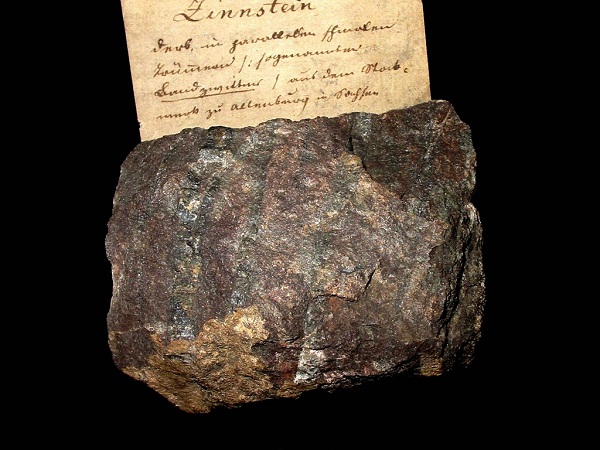 Zinnstein
derb, in parallelen schmalen
Trümmern /: sogenannten
Bandzwitter / aus dem Stock-
werk zu Altenburg in Sachsen